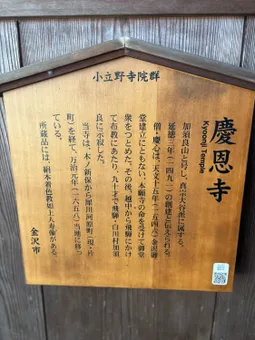 小立野寺院群
慶恩寺
Kyoonji Temple
加須良山と号し、真宗大谷派に属する。
延徳三年(一四九一)の創建と伝えられる。
僧・慶心は、天文十五年(一五四六)金沢御
堂建立にともない、本願寺の命を受けて御堂
衆をつとめた。その後、越中から飛騨にかけ
て布教にあたり、九十才で飛騨・白川村加須
良に示寂した。
当寺は、木ノ新保から犀川河原町(現・片
町)を経て、万治元年(一六五八)当地に移っ
ている。
所蔵品には、絹本着色教如上人寿像がある。
金沢市